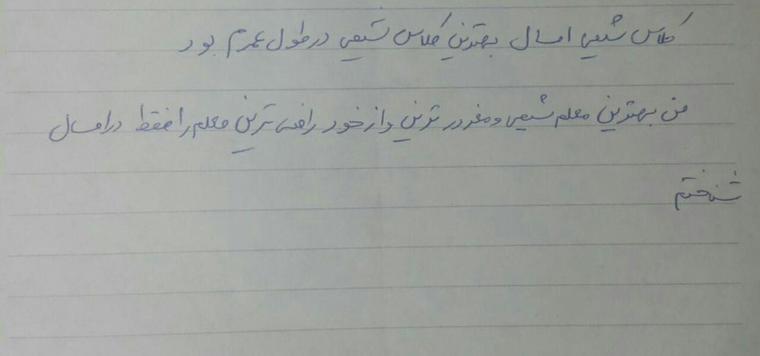 کلاس شیمی امسال بهترین کلاس شیمی در طول عمرم بود
من بهترین معلم شیمی و مغرور ترین و از خود راضی ترین معلم را فقط در امسال
شناختم